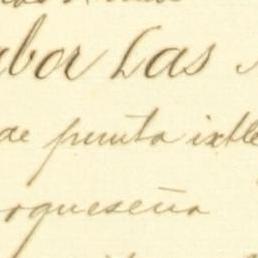 abor Las
de punta ixtle
oqueseña